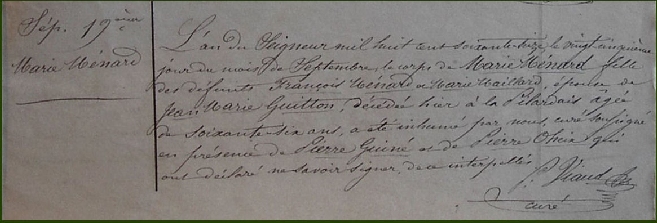 Sép. 19ième
Marie Ménard
L'an du Seigneur mil huit cent soixante-seize, le vingt cinquième
jour du mois de Septembre, le corps de Marie Ménard fille
des défunts François Ménard et Marie Maillard, épouse de
Jean Marie Guitton, décédée hier à la Pilardais agée
de soixante-six ans, a été inhumé par nous, curé soussigné
en présence de Pierre Guiné et de Pierre qui
ont déclaré ne savoir signer, de ce interpellés
P. Viaud
curé